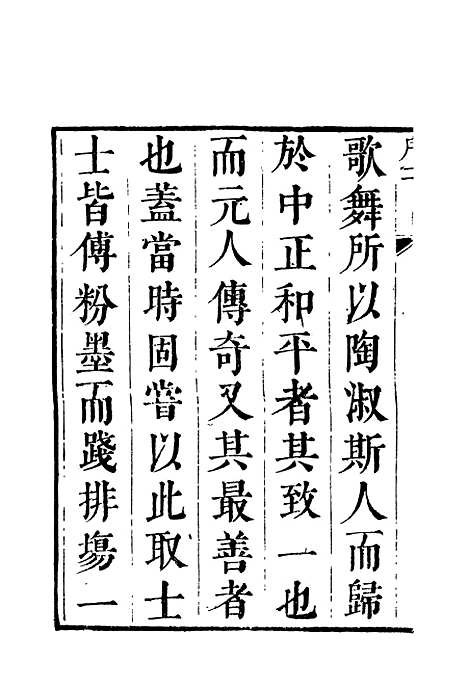 歌舞所以陶淑斯人而歸
於中正和平者其致一也
而元人傳奇又其最善者
也蓋當時固嘗以此取士
士皆傅粉墨而踐排塲一